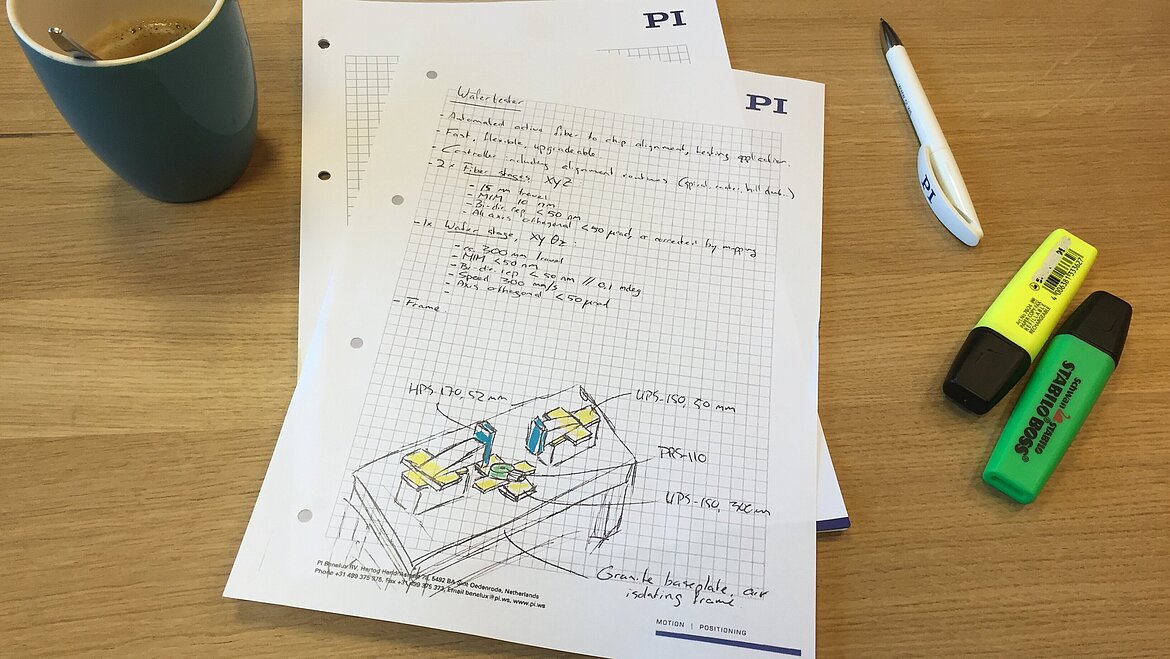 PI
PI
Wafertester
- Automated active fiber to chip alignment, testing application.
- Fast, flexible, upgradeable
- Controller including alignment routines (spiral, raster, hill climb..)
- 2x Fiber stages XYZ
- 15 mm travel
- MIM 10 nm
- Bi-dir. rep < 50 nm
- All axis orthogonal < 50 µrad, or corrected by mapping
- 1x Wafer stage, XY θz:
- 300 mm travel
- MIM < 50 nm
- Bi-dir. rep < 50 nm // 0,1 mdeg
- Speed 300 mm/s
- Axis orthogonal < 50 µrad
- Frame
52 mm
UPS-150, 50 mm
PRS-110
UPS-150, 300 mm
Granite baseplate, air
isolating frame.
PI Benelux BV, Hertog Hendrikstraat 7a, 5492 BA Sint Oedenrode, Netherlands
Phone +31 499 375 375, Fax +31 499 375 373, Email benelux@pi.ws, www.pi.ws
MOTION | POSITIONING
PI
REFILLABLE
RECHARGEABLE
4 006381 333627
schwan STABILO
STABILO BOSS